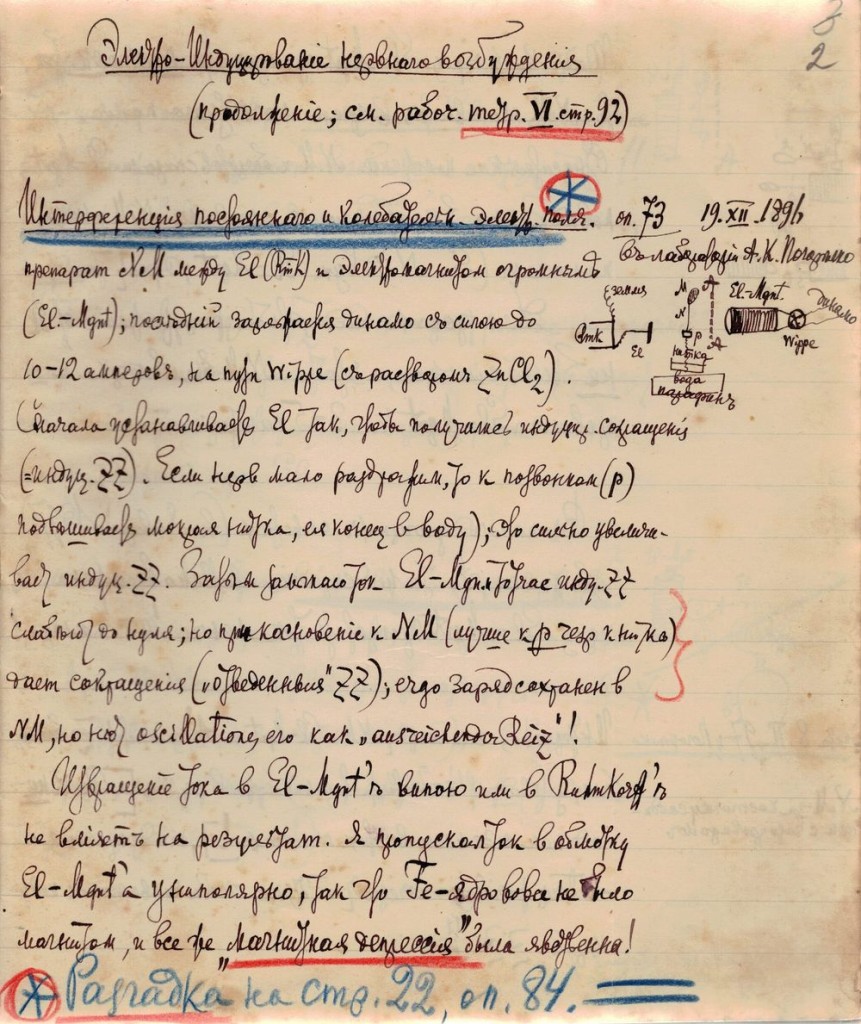 2
Электро-Индуцированіе нервнаго возбужденія
(продолженіе; см. рабоч. тетр. VI. стр. 92)
Интерференція постояннаго и колебательн. электр. поля. оп. 73 19.XII.1896
въ лабораторіи А. К.
препарат NM между El (Rmk) и электромагнитом огромнымъ
(El.-Mgnt); послѣдній заряжается динамо съ силою до
10-12 амперовъ, на пути Wippe (съ растворомъ ZnCl2).
земля
Rmk
El
M
N
p
нитка
вода
парафинъ
A
A
El-Mgnt.
Wippe
Динамо
Сначала устанавливаетъ El так, чтобы получились индукц. сокращенія
(=индукц. ZZ). Если нерв мало раздражим, то к позвонкам (p)
подвѣшивается мокрая нитка, ея конец в воду); это сильно увеличи-
вает индукц. ZZ. Затѣм ток El-Mgnt тотчас индук. ZZ
слабѣют до нуля; но прикосновеніе к NM (лучше к p через нитка)
дает сокращенія („отведенныя" ZZ); заряд сохранен в
NM, но нѣт oscillatione, его как „ausreichender Reiz"!
Извращеніе тока в El-Mgnt'ѣ виппою или в Ruhmkorff'ѣ
не вліяетъ на результат. Я пропускал ток в обмотку
El-Mgnt'а униполярно, так что Fe-ядро вовсе не было
магнитом, и все же „магнитная депрессія" была явственна!
Разгадка на стр. 22, оп. 84.